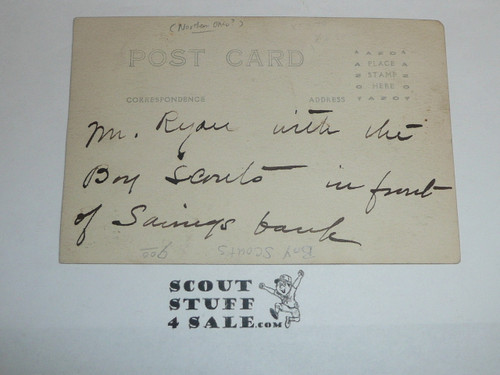 (Northern Ohio?)
POST CARD
AZOT
A PLACE A
Z STAMP Z
O HERE O
TAZOT
CORRESPONDENCE ADDRESS
Mr. Ryan with the
Boy Scouts in front
of Savings bank
Boy Scouts
900
SCOUT
STUFF
4 SALE.COM